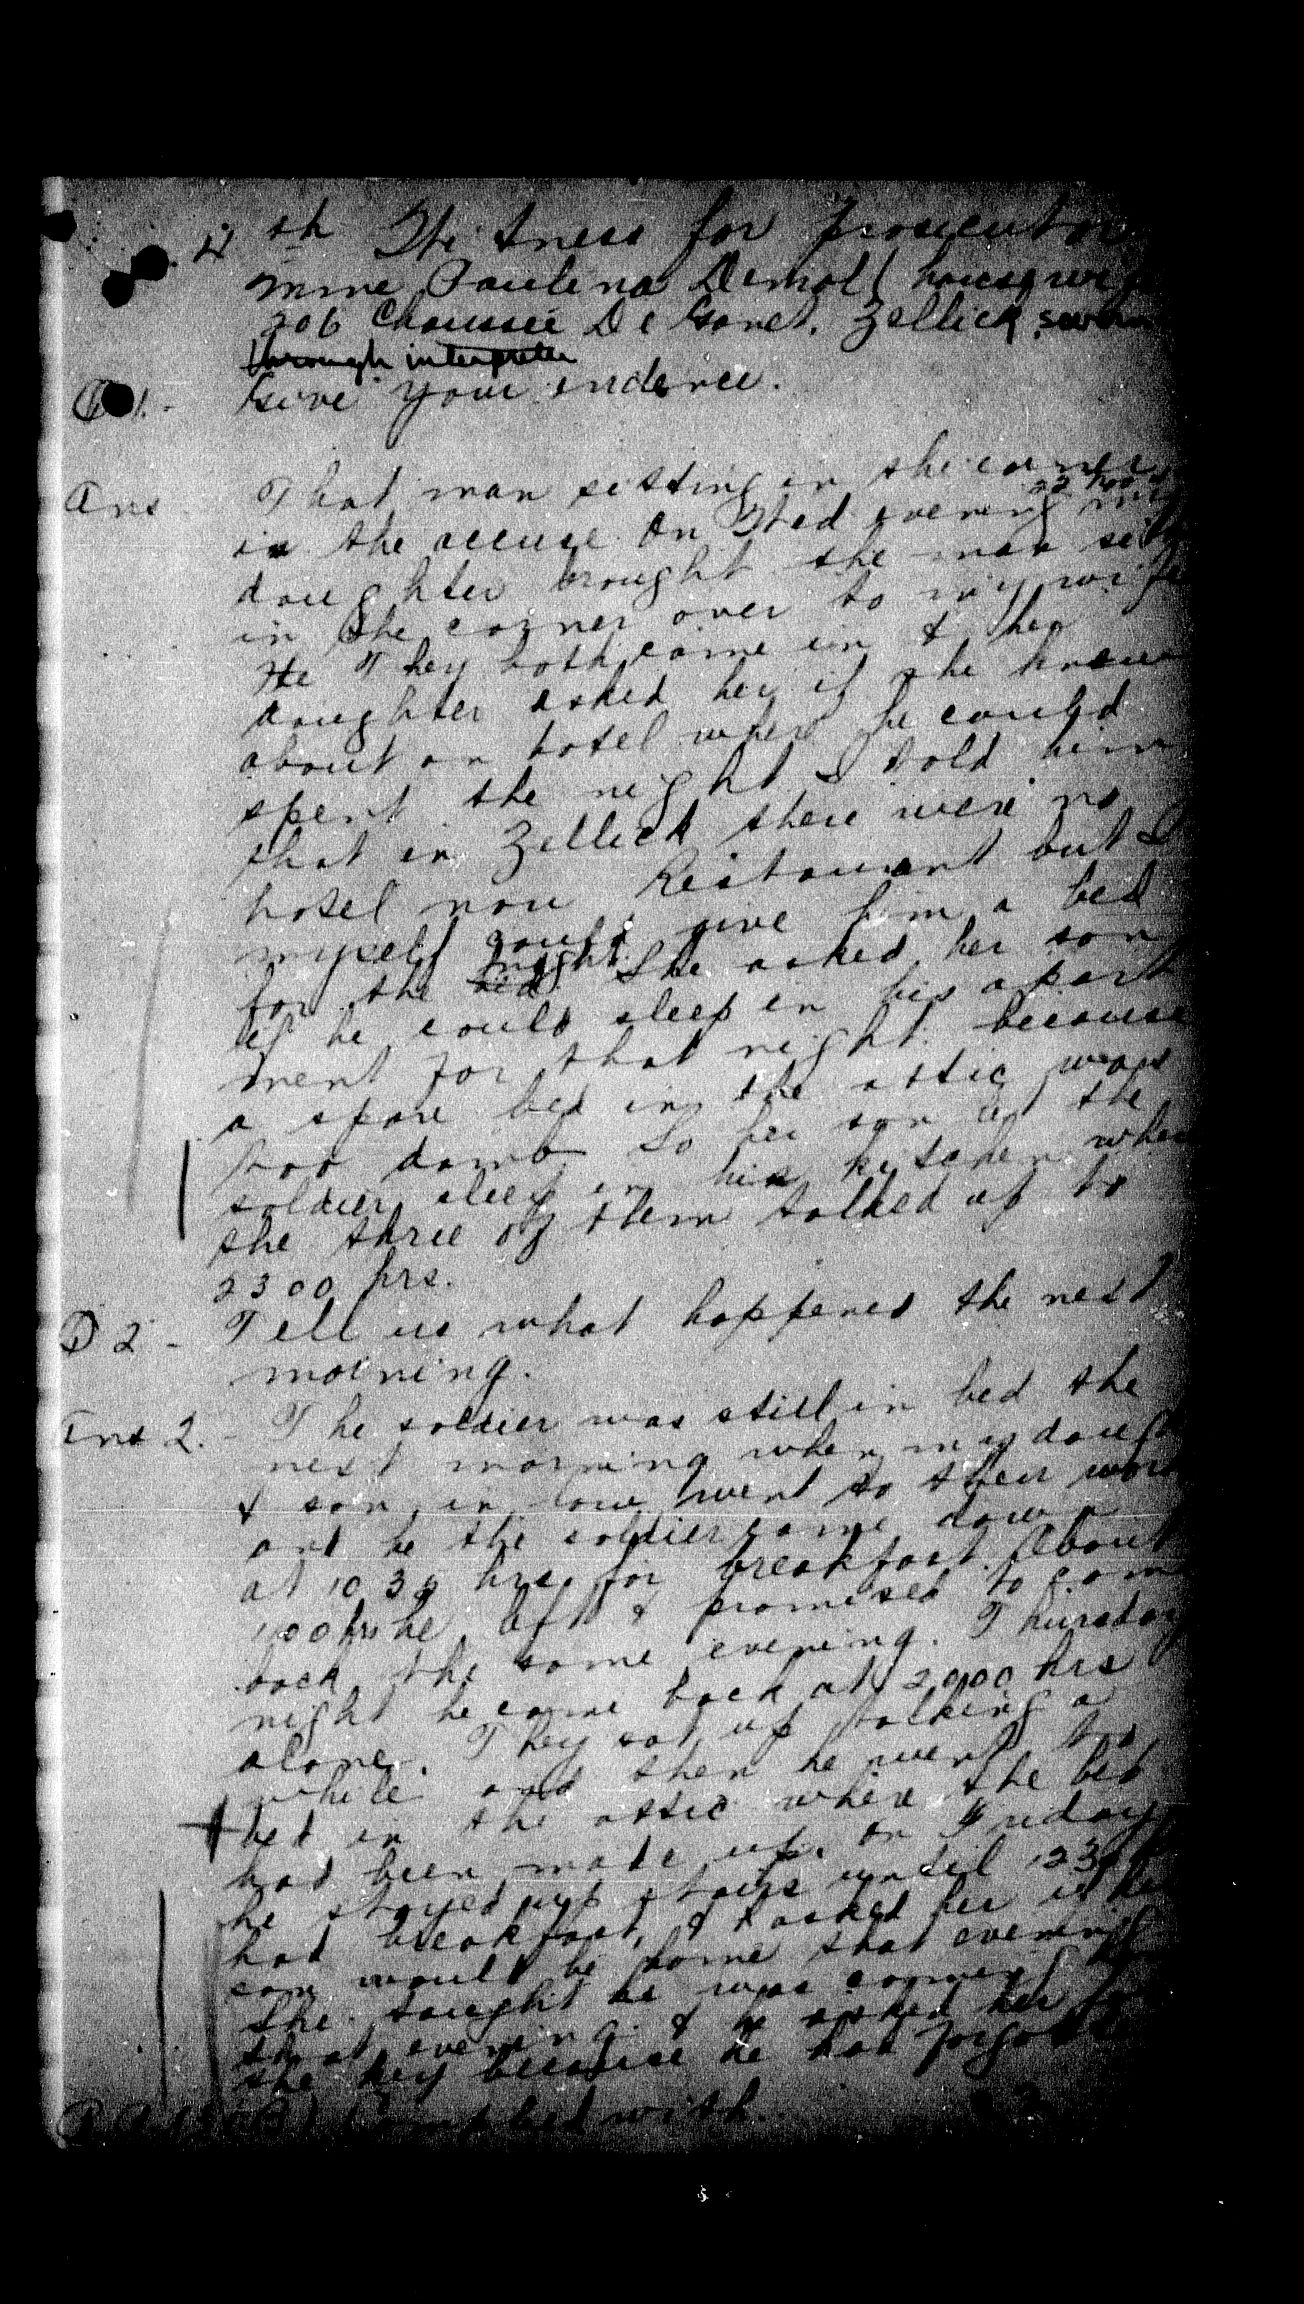 4th Witness for Prosecution
Mme Paulena Demoll housewife
206 Chaussée De Gand, Zellick, sworn
through interpreter
Q 1. - Give your evidence.
Ans That man sitting in the corner
is the accuse. On Wed evening 22 Nov my
daughter brought the man sitting
in the corner over to my wife
He They both came in & her
daughter asked her if she knew
about an hotel where he could
spent the night I told him
that in Zellick there were no
hotel nou Restaurant but I
myself could give him a bed
for the bed night. She asked her son
if he could sleep in his apart
ment for that night. because
a spare bed in the attic was
too damb So her son let the
soldier sleep in his kitchen when
the three of them talked up to
2300 hrs.
Q 2 - Tell us what happened the next
morning.
Ans 2. - The soldier was still in bed the
next morning when my daugh
& son in law went to their work
and he the soldier came down
at 1030 hrs for breakfast. About
1100 hrs he left & promised to come
back the same evening. Thursday
night he came back at 2000 hrs
alone. They sat up talking a
while and then he went to
bed in the attic where the bed
had been made up. On Friday
he stayed up stairs until 1230
had breakfast, & asked her if her
son would be home that evening
She taught he was coming
that evening & he asked her for
the key because he had forgot
R.P. 83(B) Complied with.